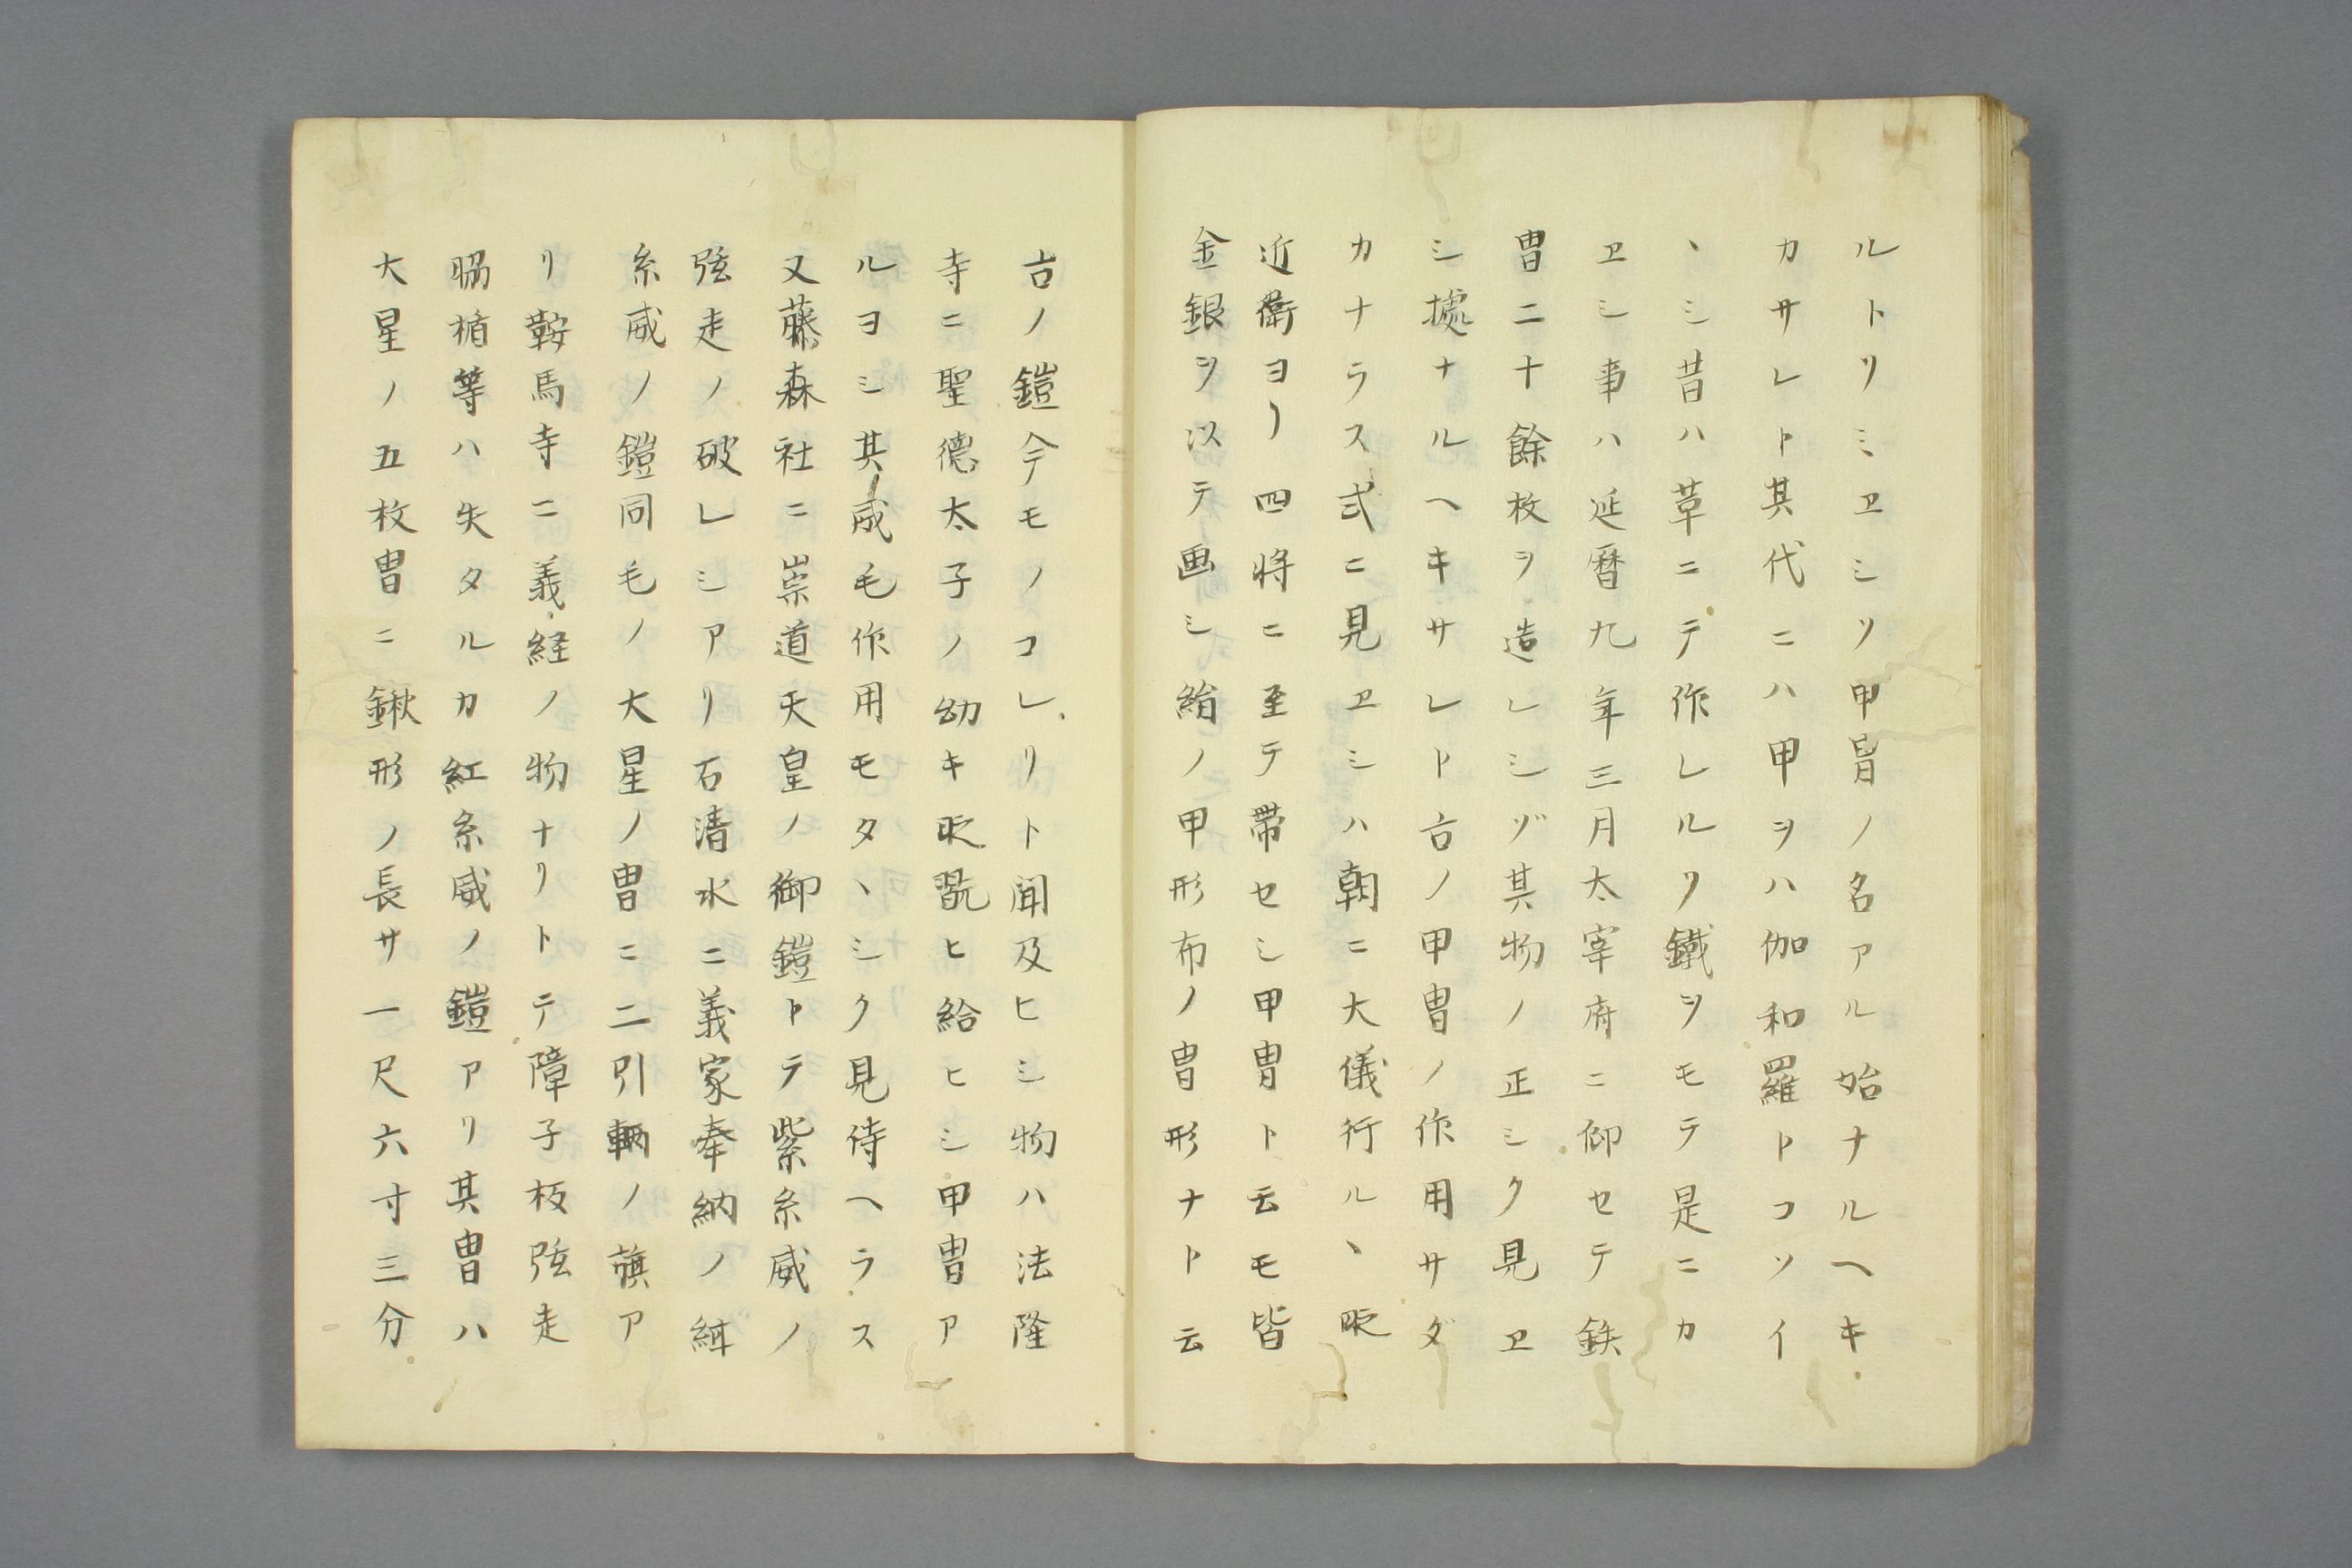 ルトリミヱシソ甲冑ノ名アル始ナルヘキ
カサレト其代ニハ甲ヲハ伽和羅トコソイ
ヽシ昔ハ草ニテ作レルヲ鐵ヲモテ是ニカ
ヱシ事ハ延暦九年三月太宰府ニ仰セテ鉄
冑二十餘枚ヲ造レシゾ其物ノ正シク見ヱ
シ據ナルヘキサレト古ノ甲冑ノ作用サダ
カナラス式ニ見ヱシハ朝ニ大儀行ルヽ時
近衛ヨリ四将ニ至テ帶セシ甲冑ト云モ皆
金銀ヲ以テ画シ絹ノ甲形布ノ冑形ナト云
古ノ鎧今モノコレリト聞及ヒシ物ハ法隆
寺ニ聖德太子ノ幼キ時翫ヒ給ヒシ甲冑ア
ルヨシ其威毛作用モタヽシク見侍ヘラス
又藤森社ニ崇道天皇ノ御鎧トテ紫糸威ノ
弦走ノ破レシアリ石清水ニ義家奉納ノ緋
糸威ノ鎧同毛ノ大星ノ冑ニ二引輌ノ旗ア
リ鞍馬寺ニ義経ノ物ナリトテ障子板弦走
脇楯等ハ失タルカ紅糸威ノ鎧アリ其冑ハ
大星ノ五枚冑ニ鍬形ノ長サ一尺六寸三分